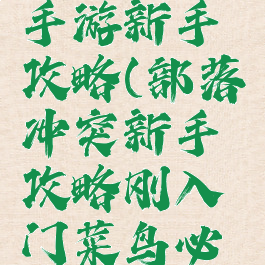 手游新手
攻略(部落
冲突新手
攻略刚入
门菜鸟必